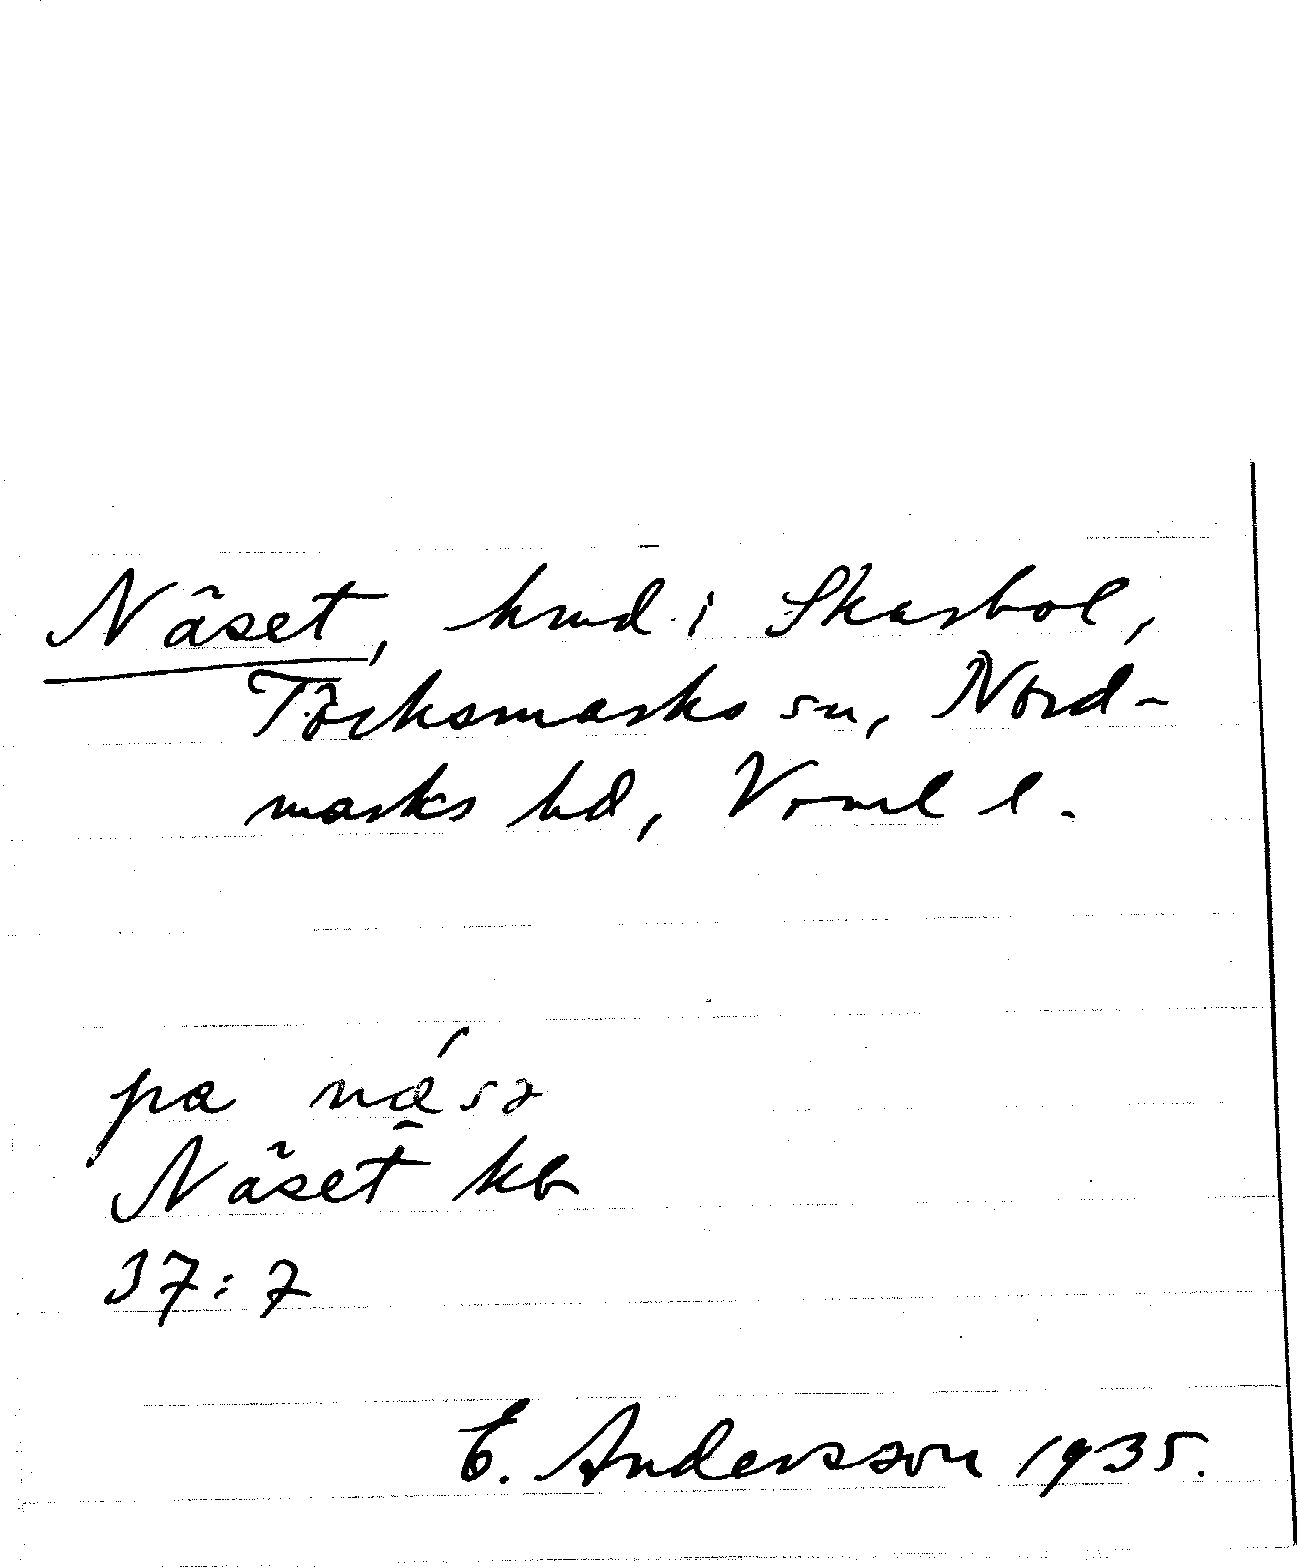 Näset, hmd i Skarbol,
Töcksmarks sn, Nord-
marks hd, Vrml l.
pa nǽsə
Näset kb
37:7
E. Andersson 1935.